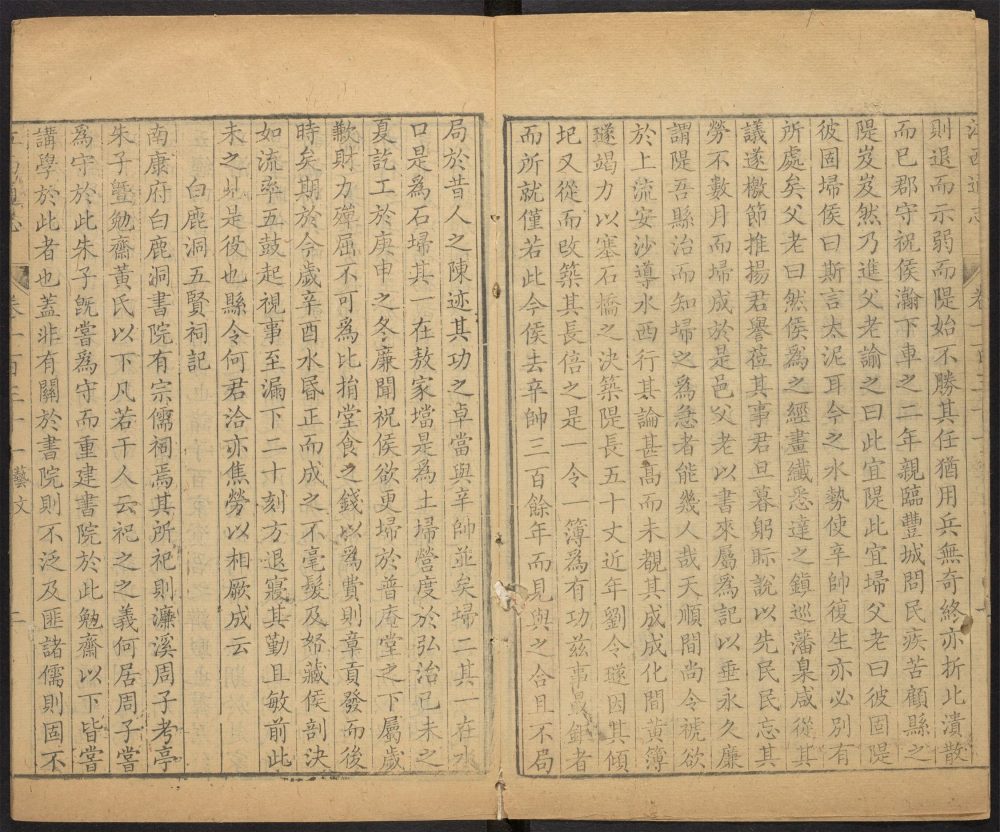 江西通志 卷一百三十一
則退而示弱而隄始不勝其任猶用兵無奇終亦折北潰散
而已郡守祝侯瀚下車之二年親臨豐城問民疾苦顧縣之
隄岌岌然乃進父老諭之曰此宜隄此宜埽父老曰彼固隄
彼固埽侯曰斯言太泥耳今之水勢使辛帥復生亦必別有
所處矣父老曰然侯為之經畫纖悉達之鎮巡藩臬咸從其
議遂檄節推揚君譽蒞其事君旦暮躬眎說以先民民忘其
勞不數月而埽成於是邑父老以書來屬為記以垂永久廉
謂隄吾縣治而知埽之為急者能幾人哉天順間尚令褫欲
於上流安沙導水西行其論甚高而未覩其成成化間黃簿
璲竭力以塞石橋之決築隄長五十丈近年劉令遂因其傾
圮又從而改築其長倍之是一令一簿為有功茲事最鉅者
而所就僅若此今侯去辛帥三百餘年而見與之合且不局
局於昔人之陳迹其功之卓當與辛帥並矣埽二其一在水
口是為石埽其一在敖家壋是為土埽營度於弘治己未之
夏訖工於庚申之冬廉聞祝侯欲更埽於普庵堂之下屬歲
歉財力殫屈不可為比捐堂食之錢以為費則章貢發而後
時矣期於今歲辛酉水昏正而成之不毫髮及帑藏侯剖決
如流率五鼓起視事至漏下二十刻方退寢其勤且敏前此
未之見是役也縣令何君洽亦焦勞以相厥成云
白鹿洞五賢祠記
南康府白鹿洞書院有宗儒祠焉其所祀則濂溪周子考亭
朱子曁勉齋黃氏以下凡若干人云祀之之義何居周子嘗
為守於此朱子旣嘗為守而重建書院於此勉齋以下皆嘗
講學於此者也蓋非有關於書院則不泛及匪諸儒則固不
卷一百三十一 藝文 二